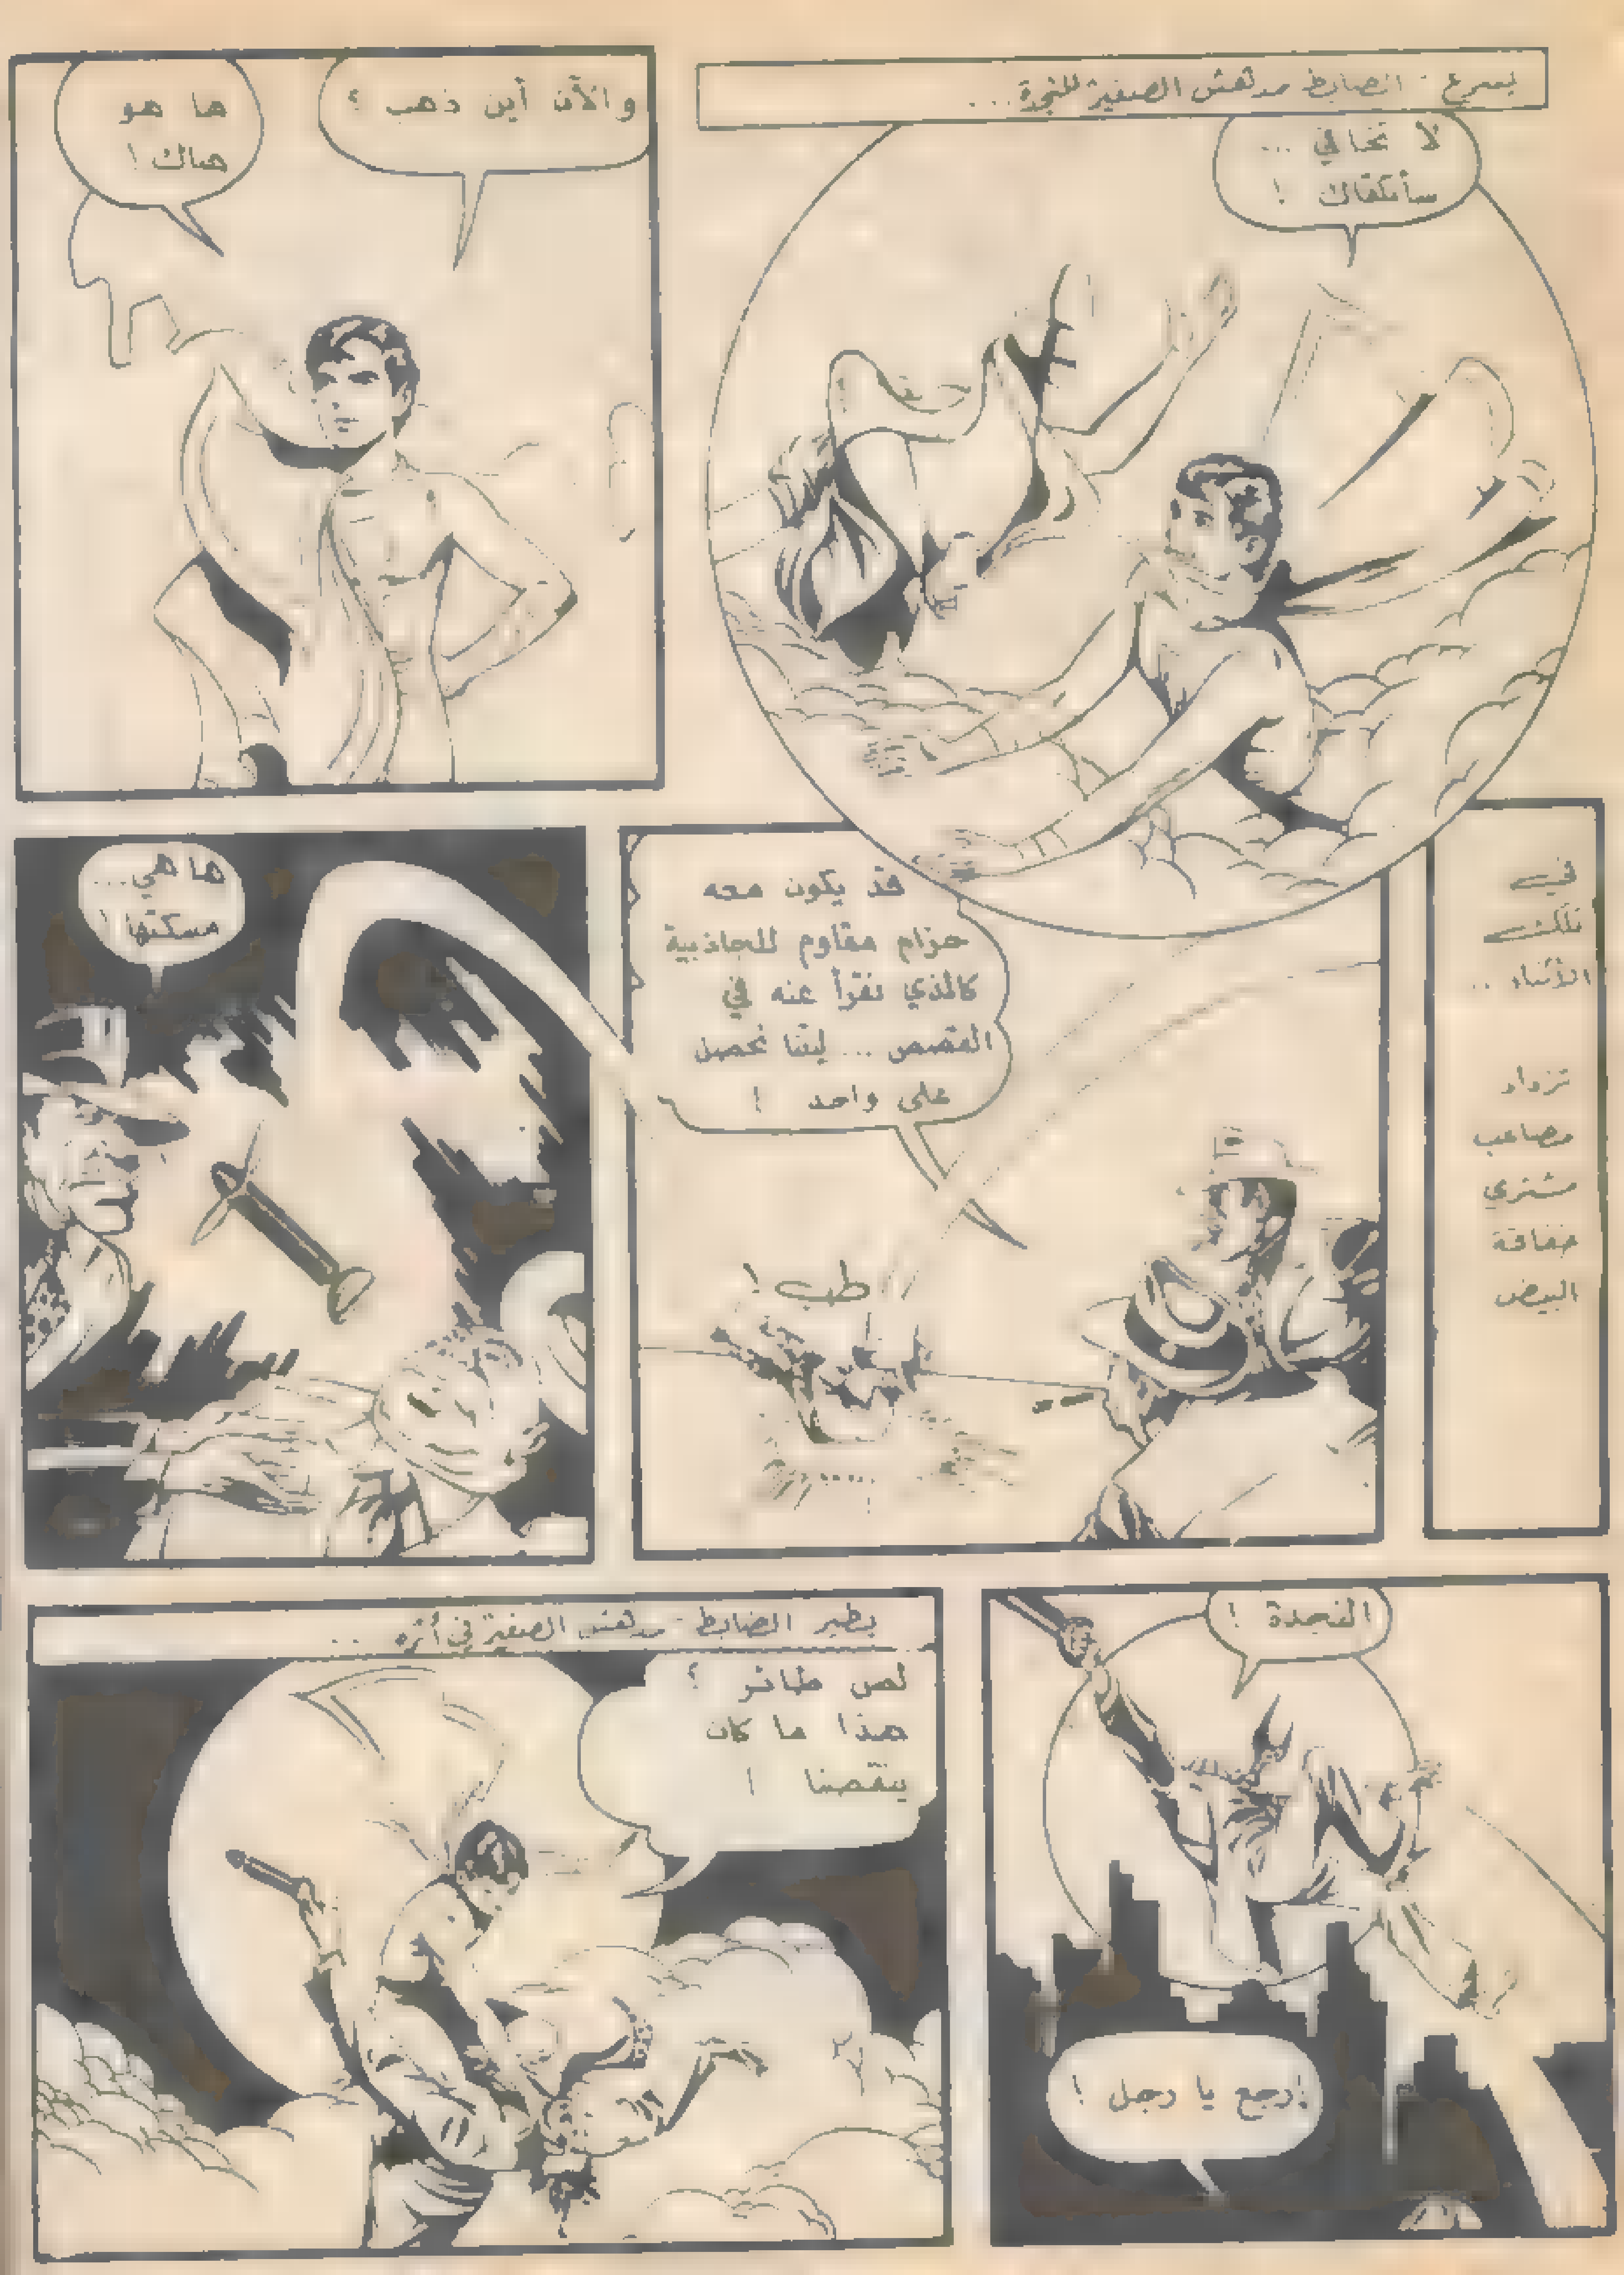 يسرع الضابط مدهش الصغير للنجدة...
لا تخافي ...
سأتلقاك !
والآن أين ذهب ؟
ها هو
هناك !
في
تلك
الأثناء ..
تزداد
مصاعب
مشتري
خفاقة
البيض
قد يكون معه
حزام مقاوم للجاذبية
كالذي نقرأ عنه في
القصص ... ليتنا نحصل
على واحد !
طب !
ها هي...
مسكتها !
النجدة !
إرجع يا رجل !
يطير الضابط مدهش الصغير في أثره ..
لص طائر ؟
هذا ما كان
ينقصنا !